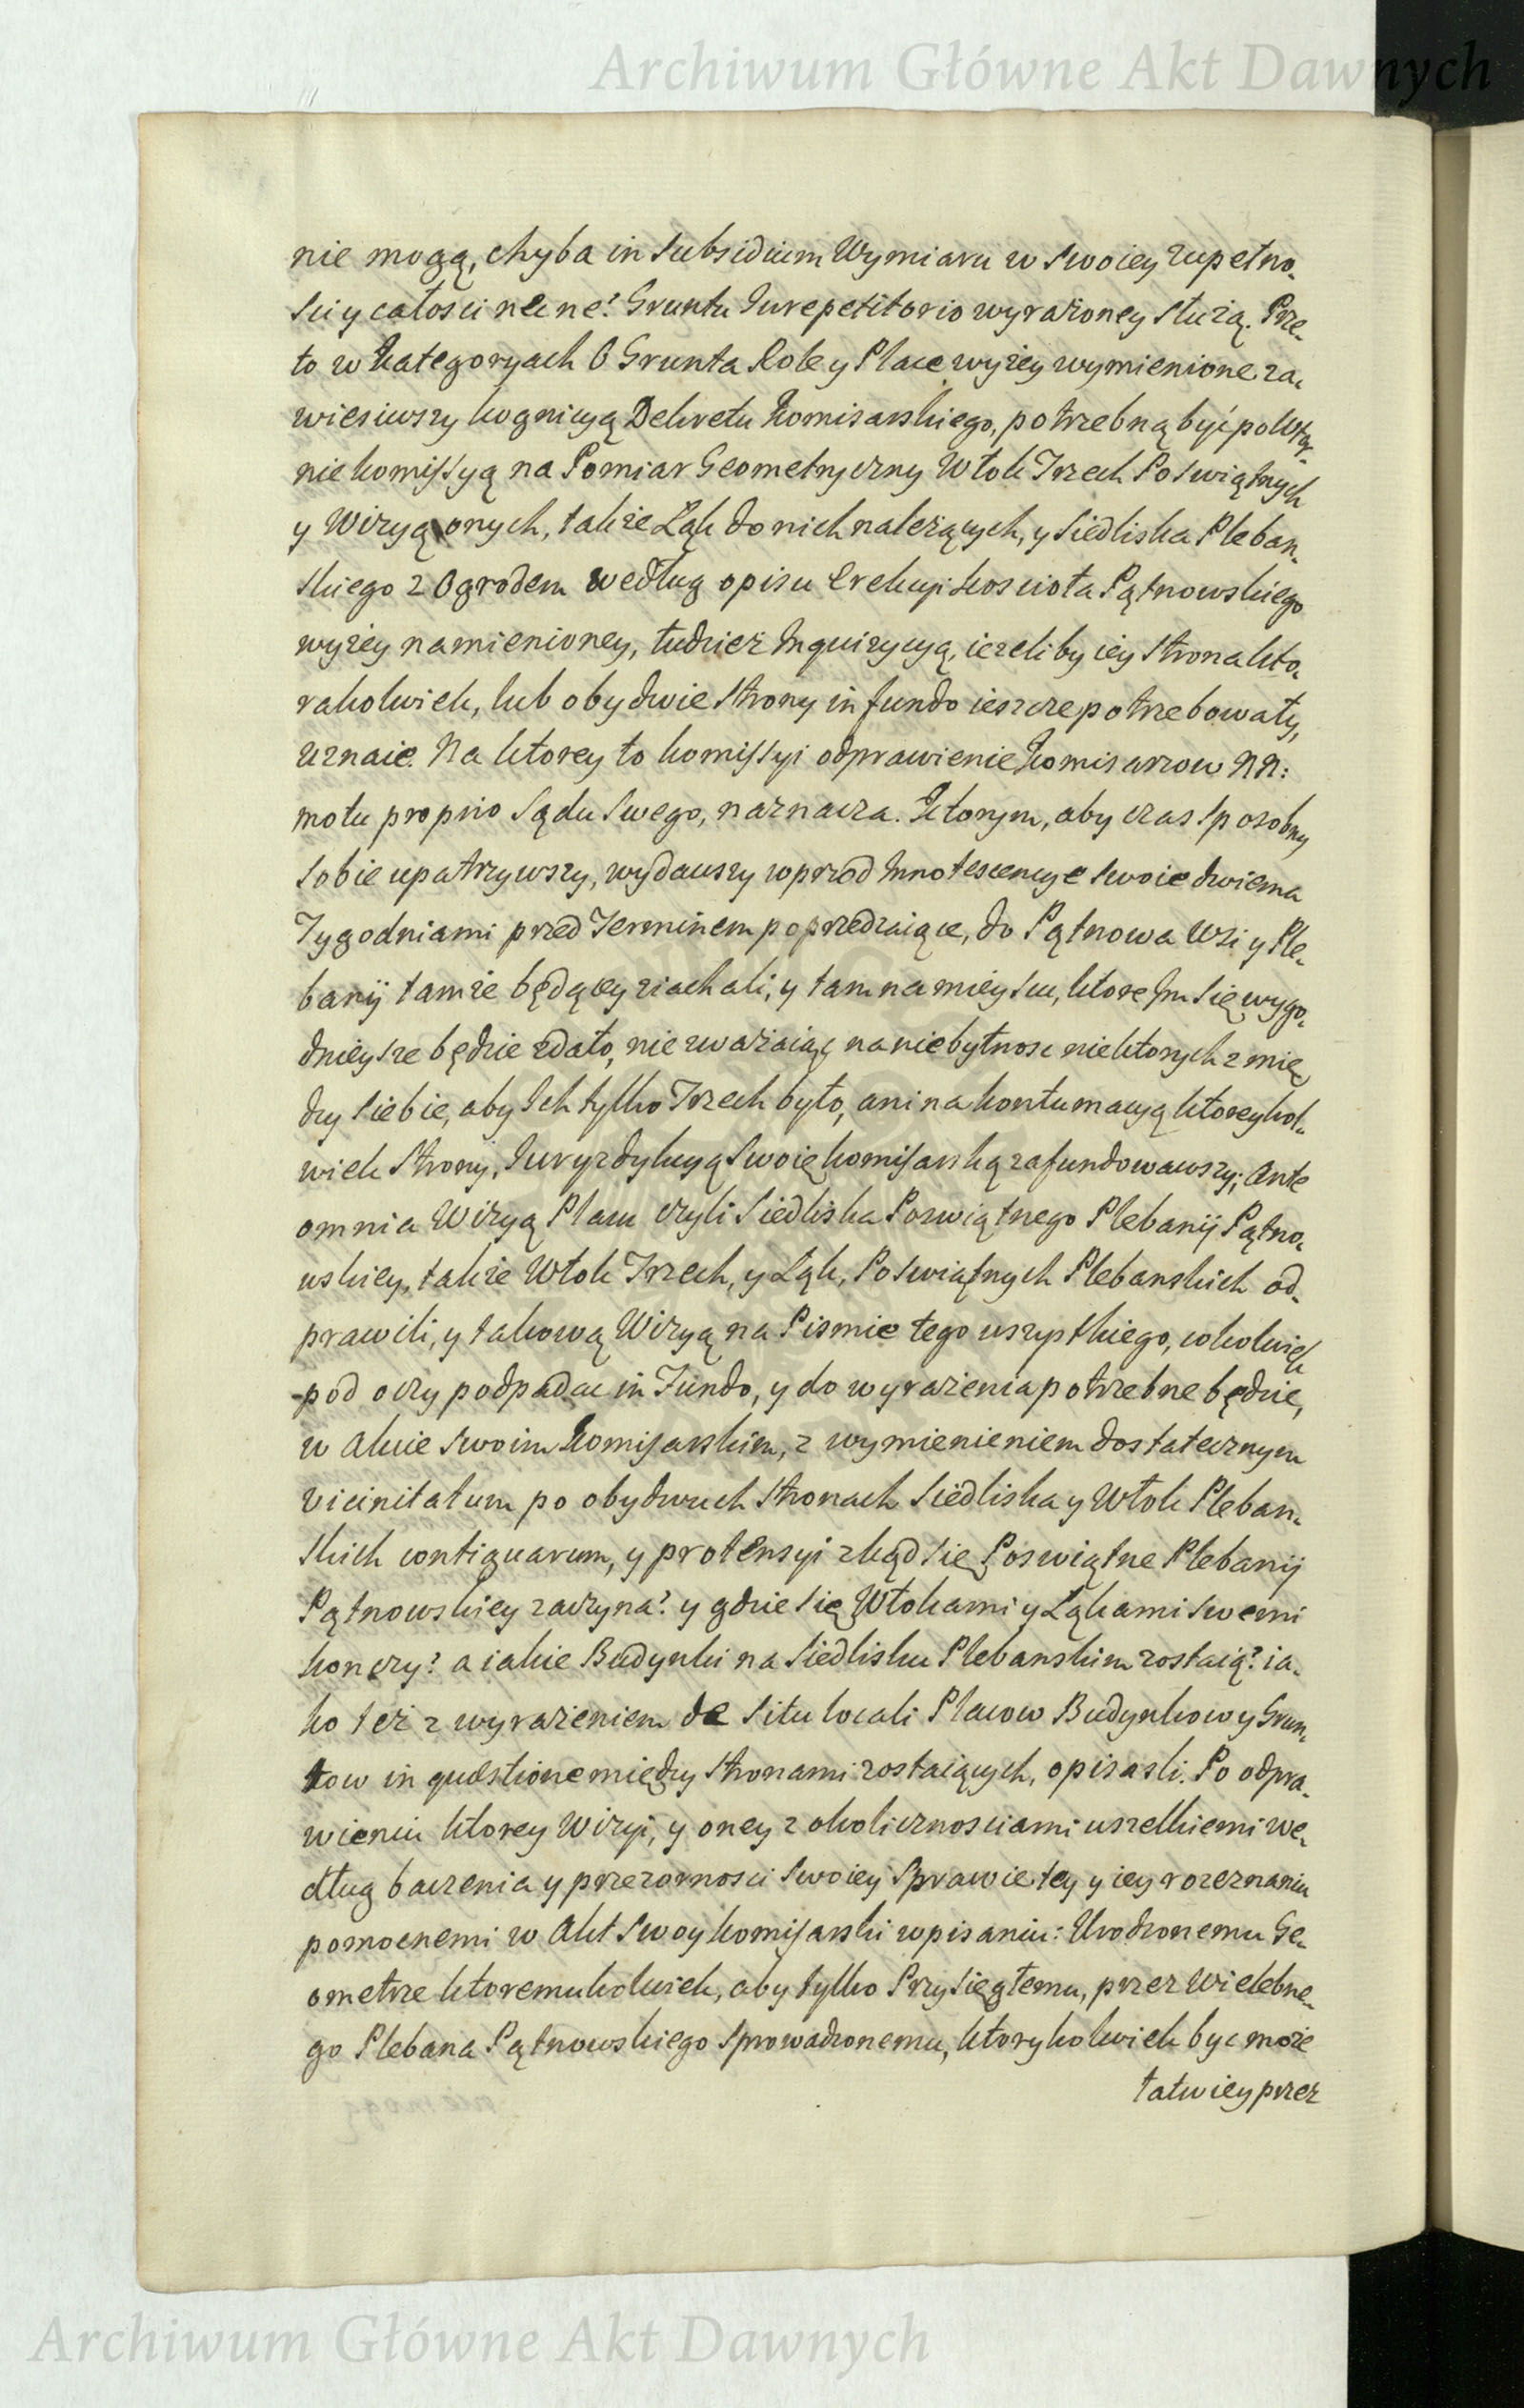 Archiwum Główne Akt Dawnych
nie mogą, chyba in Subsidium Wymiaru w Swoiey zupełno,
Sci y całosci necne? Gruntu Jurepetitorio wyrażoney Służą. Prze,
to w Kategoryach O Grunta Role y Place wyżey wymienione za,
wiesiwszy kognicyą Dekretu Komisarskiego, potrzebną być powtor,
nie komissyą na Pomiar Geometryczny Włok Trzech Poswiątnych
y Wizyą onych, także Łąk do nich należących, y Siedliska Pleban,
skiego z Ogrodem według opisu Erekcyi Koscioła Pątnowskiego
wyżey namienioney, tudzież Inquizycyą, ieżeliby iey Strona kto,
rakolwiek, lub obydwie Strony in fundo ieszcze potrzebowały,
uznaie. Na ktorey to komissyi odprawienie Komisarzow NN:
motu proprio Sądu Swego, naznacza. Ktorym, aby czas Sposobny
Sobie upatrzywszy, wydawszy wprzod Innotescencye Swoie dwiema
Tygodniami przed Terminem poprzedzaiące, do Pątnowa Wsi y Ple,
banij tamże będącey ziachali, y tam na mieyscu, ktore Im Się wygo,
dnieysze będzie zdało, nie zważaiąc na niebytnosc niektorych z mię,
dzy Siebie, aby Ich tylko Trzech było, ani na kontumacyą ktoreykol,
wiek Strony, Juryzdykcyą Swoię komisarską zafundowawszy; Ante
omnia Wizyą Placu czyli Siedliska Poswiątnego Plebanij Pątno,
wskiey, także Włok Trzech, y Łąk, Poswiątnych Plebanskich od,
prawili, y takową Wizyą na Pismie tego wszystkiego, cokolwiek
pod oczy podpadac in Fundo, y do wyrażenia potrzebne będzie,
w Akcie Swoim Komisarskim, z wymienieniem dostatecznym
vicinitatum po obydwuch Stronach Siedliska y Włok Pleban,
skich contiguarum, y protensyi zkąd Się Poswiątne Plebanij
Pątnowskiey zaczyna? y gdzie Się Włokami y Łąkami Swemi
konczy? a iakie Budynki na Siedlisku Plebanskim zostaią? ia,
ko też z wyrażeniem de Situ locali Placow Budynkow y Grun,
tow in quæstione między Stronami zostaiących, opisali. Po odpra,
wieniu ktorey Wizyi, y oney z okolicznosciami wszelkiemi we,
dług baczenia y przezornosci Swoiey Sprawie tey y iey rozeznaniu
pomocnemi w Akt Swoy komisarski wpisaniu: Urodzonemu Ge,
ometrze ktoremukolwiek, aby tylko Przysięgłemu, przez Wielebne,
go Plebana Pątnowskiego Sprowadzonemu, ktorykolwiek byc może
łatwiey przez
Archiwum Główne Akt Dawnych